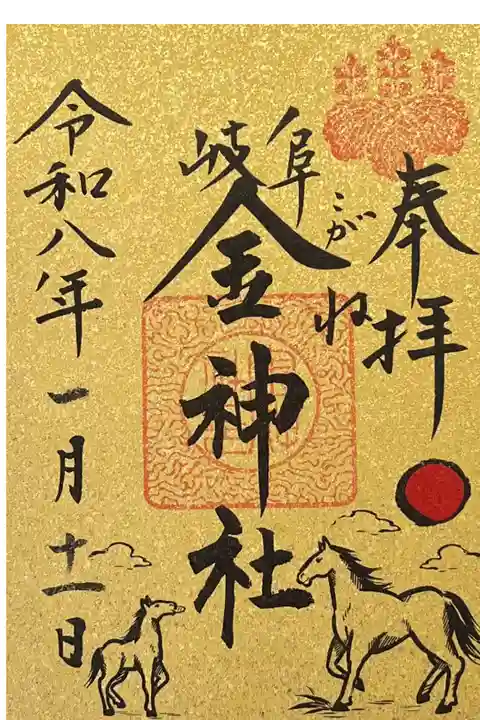 奉拝
岐阜
金神社
こがね
令和八年一月十一日